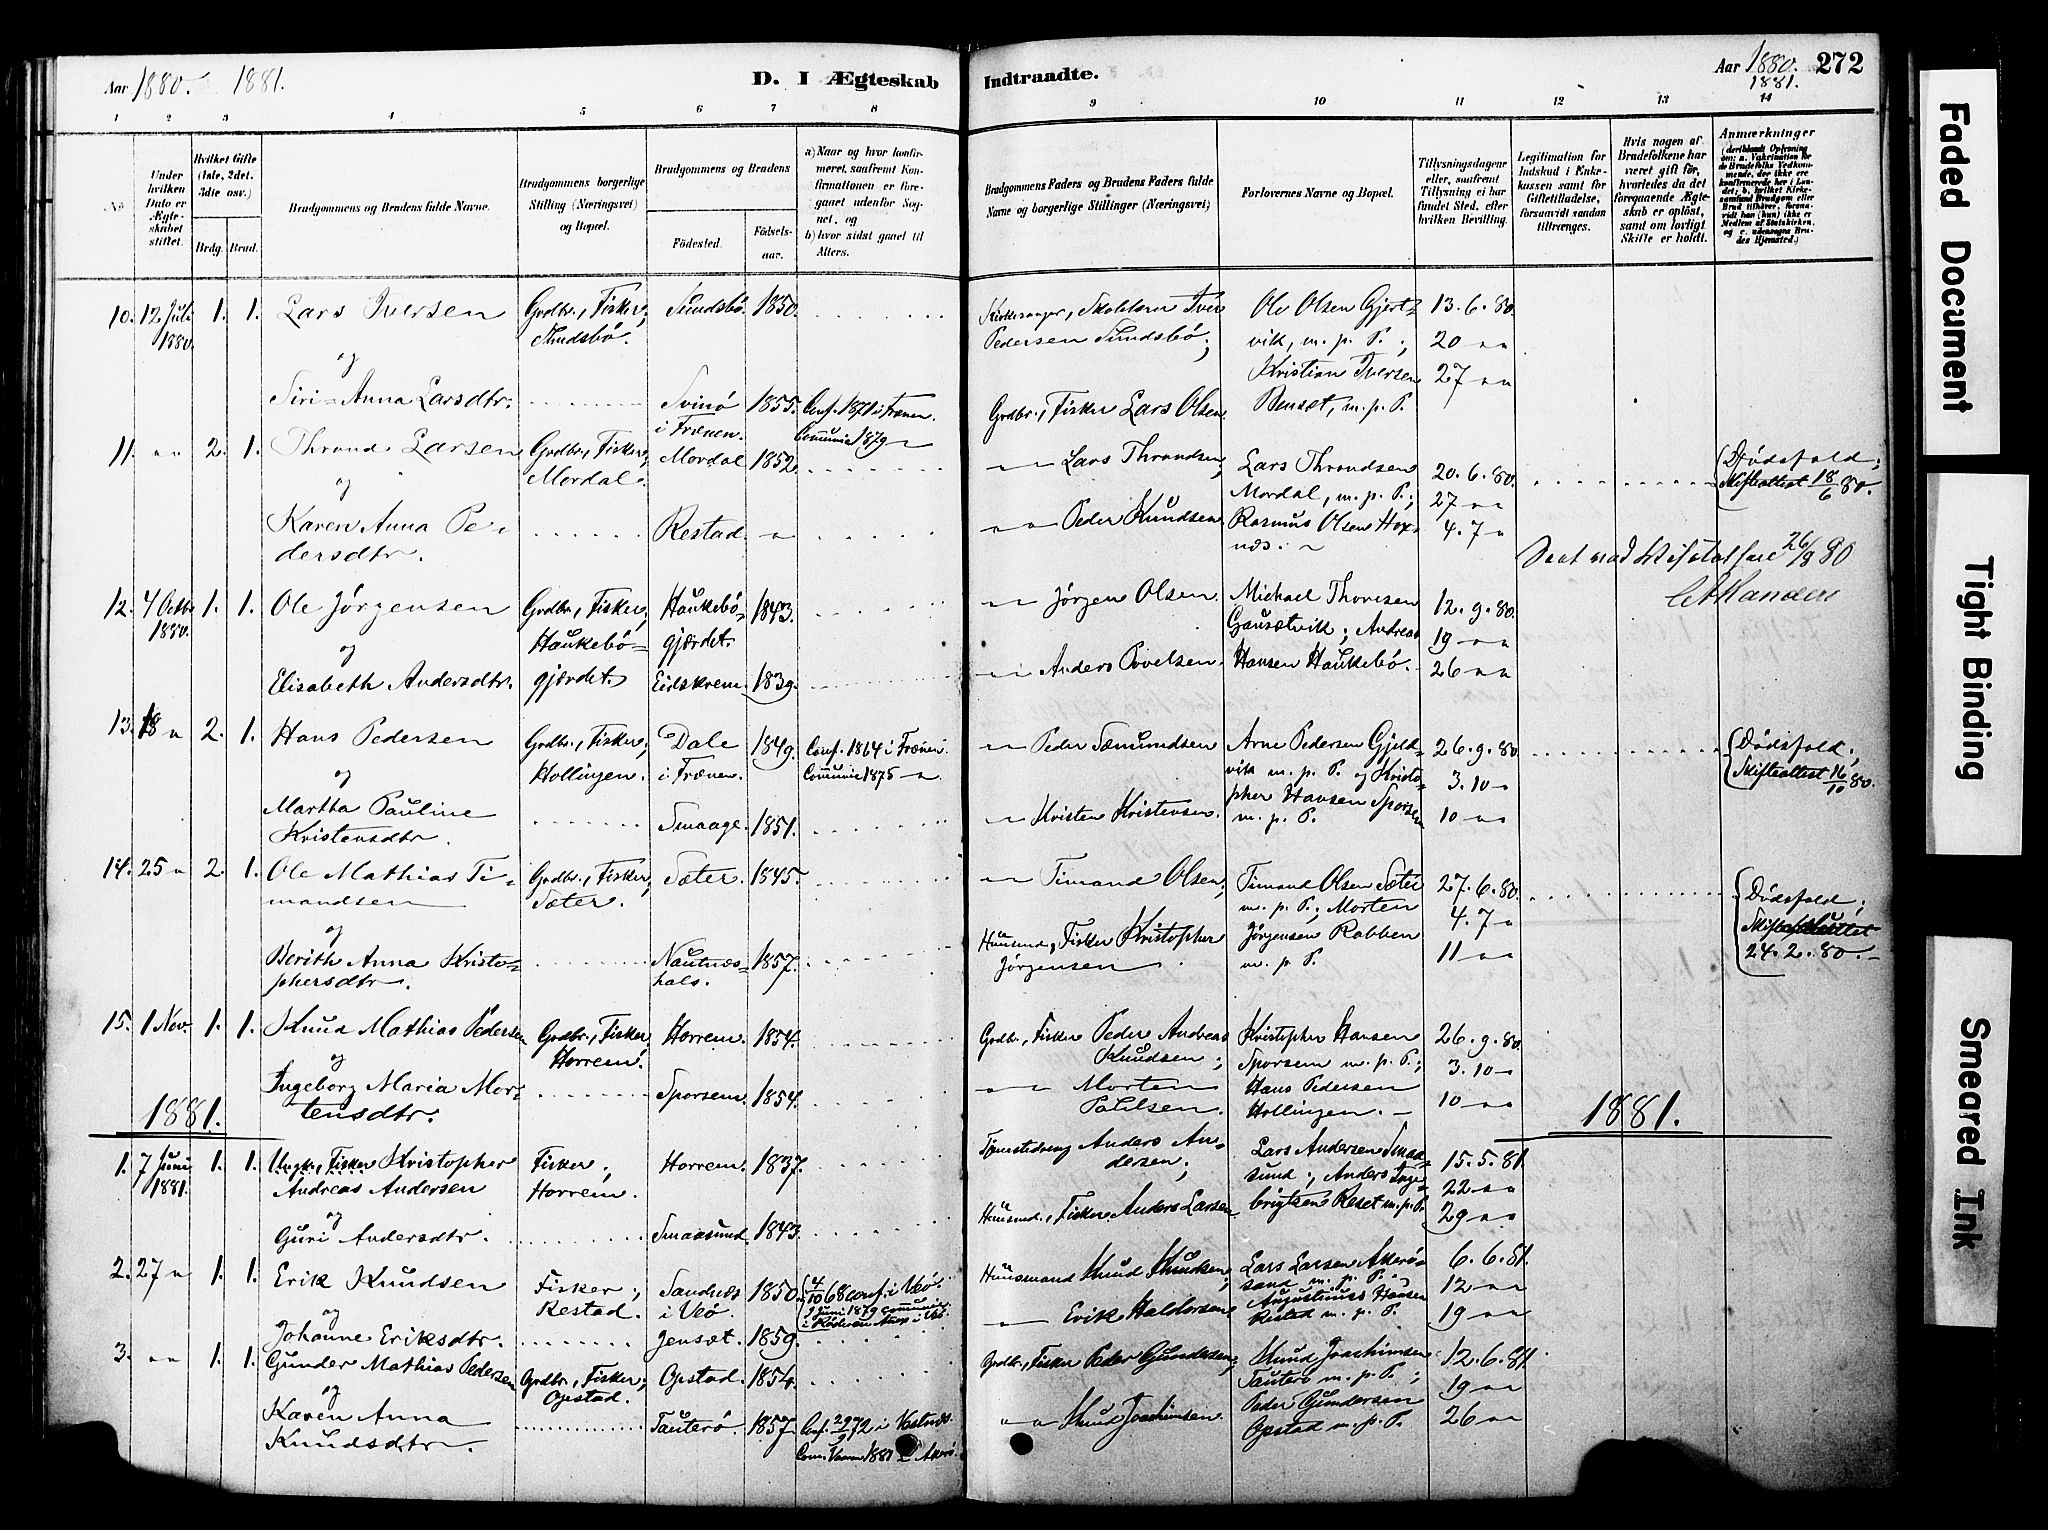 Aar 1880. 1881. D. I Ægteskab Indtraadte. Aar 1880. 272
1881.
1 2 3 4 5 6 7 8 9 10 11 12 13 14
No.
Under hvilken Dato er Ægteskabet stiftet.
Hvilket Gifte (1ste, 2det, 3die osv.)
Brdg. Brud.
Brudgommens og Brudens fulde Navne.
Brudgommens borgerlige Stilling (Næringsvei) og Bopæl.
Brudgommens og Brudens
Födested. Födsels-aar.
a) Naar og hvor konfirmeret, saafremt Konfirmationen er foregaaet udenfor Sognet, og
b) hvor sidst gaaet til Alters.
Brudgommens Faders og Brudens Faders fulde Navne og borgerlige Stillinger (Næringsvei)
Forlovernes Navne og Bopæl.
Tillysningsdagene eller, saafremt Tillysning ei har fundet Sted, efter hvilken Bevilling.
Legitimation for Indskud i Enkekassen samt for Giftetilladelse, forsaavidt saadan tiltrænges.
Hvis nogen af Brudefolkene har været gift för, hvorledes da det foregaaende Ægteskab er oplöst, samt om lovligt Skifte er holdt.
Anmærkninger
10. 12 Juli 1880. 1. 1. Lars Iversen Grdbr., Fisker, Sundsbö. Sundsbö. 1850. Kirkesanger, Skolelærer Iver Pedersen Sundsbö; Ole Olsen Gjertvik, m. p. P.; Kristian Iversen Bensæt, m. p. P. 13. 6. 80. 20 " " 27 " "
og
Siri-Anna Larsdtr. Svinö i Frænen. 1855. Conf. 1871 i Frænen. Communic. 1879 " Grdbr., Fisker Lars Olsen
11. " " 2. 1. Thrond Larsen Grdbr., Fisker, Mordal. Mordal 1852. " " Lars Throndsen, Lars Throndsen Mordal, m. p. P.; Rasmus Olsen 20. 6. 80. 27 " " 4. 7 " Dödsfald; Skifteattest 18/6 80.
og
Karen Anna Pedersdtr. Restad. " " " Peder Knudsen
26/9 80
12. 4 Octbr 1880. 1. 1. Ole Jörgensen Grdbr., Fisker, Haukebögjærdet. Haukebögjærdet. 1843. " " Jörgen Olsen Michael Thoresen Gausætvik; Andreas Hansen Haukebö. 12. 9. 80. 19 " " 26 " "
og
Elisabeth Andersdtr. Eidskrem. 1839. " " Anders Povelsen
13. 18 " 2. 1. Hans Pedersen Grdbr., Fisker, Hollingen. Dale i Frænen. 1849. Conf. 1864 i Frænen Communic. 1875 " " " Peder Sæmundsen Arne Pedersen Gjeldvik m. p. P. og Kristopher Hansen Sporsem m. p. P. 26. 9. 80. 3. 10 " 10 " " Dödsfald; Skifteattest 16/10 80.
og
Martha Pauline Kristensdtr. Smaage. 1851. " " Kristen Kristensen.
14. 25 " 2. 1. Ole Mathias Timandsen Grdbr., Fisker, Sæter. Sæter. 1845. " " Timand Olsen, Timand Olsen Sæter m. p. P.; Morten Jörgensen Rabben m. p. P. 27. 6. 80. 4. 7 " 11 " " Dödsfald; 24. 2. 80.
og
Berith Anna Kristophersdtr. Nautneshals. 1857. Husmd., Fisker Kristopher Jörgensen
15. 1 Nov. 1. 1. Knud Mathias Pedersen Grdbr., Fisker, Horrem. Horrem. 1854. Grdbr., Fisker Peder Andreas Knudsen; Kristopher Hansen Sporsem m. p. P.; Hans Pedersen Hollingen. 26. 9. 80. 3. 10 " 10 " "
og
Ingeborg Maria Mortensdtr. Sporsem. 1854. " " Morten Palsen.
1881. 1881.
1. 7 Juni 1881. 1. 1. Ungk., Fisker Kristopher Andreas Andersen Fisker, Horrem. Horrem. 1837. Tjenestedreng Anders Andersen; Lars Andersen Smaasund; Anders Ingebrigtsen Reset m. p. P. 15. 5. 81. 22 " " 29 " "
og
Guri Andersdtr. Smaasund. 1843. Husmd., Fisker Anders Larsen
2. 27 " 1. 1. Erik Knudsen Fisker, Restad. Sandnæs i Veö. 1850. 4/10 68 conf. i Veö. Juni 1879 communic. i Röderen Anex i Veö. Husmand Knud Knudsen, Lars Larsen Akerösand m. p. P. Augustinus Hansen Restad m. p. P. 6. 6. 81. 12 " " 19 " "
og
Johanne Eriksdtr. Jensæt. 1859. " " Erik Haldorsen
3. " " 1. 1. Gunder Mathias Pedersen Grdbr., Fisker, Opstad. Opstad. 1854. Grdbr., Fisker Peder Gundersen, Knud Joachimsen Tauterö m. p. P.; Peder Gundersen Opstad m. p. P. 12. 6. 81. 19 " " 26 " "
og
Karen Anna Knudsdtr. Tauterö. 1857. Conf. 29/9 72 i Vestnæs. " " Knud Joachimsen.
Faded Document
Tight Binding
Smeared Ink